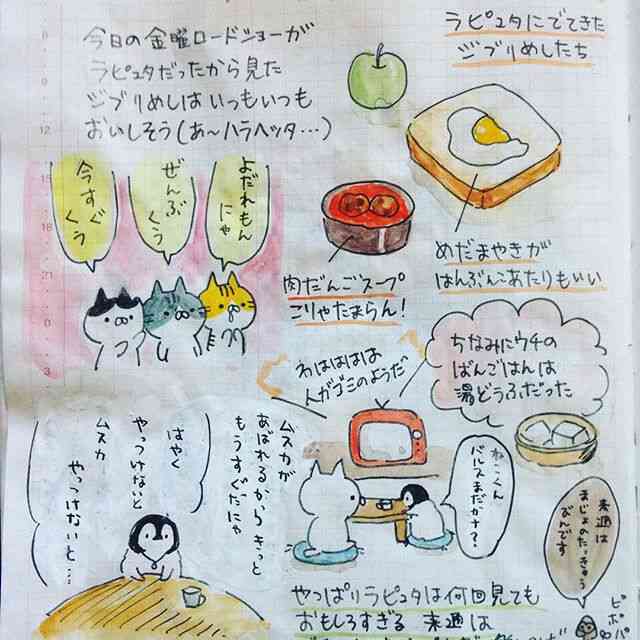 今日の金曜ロードショーが
ラピュタだったから見た
ジブリめしはいつもいつも
おいしそう(あ〜ハラヘッタ…)
ラピュタにでてきた
ジブリめしたち
よだれもん
にゃ
ぜんぶ
くう
今すぐ
くう
めだまやきが
はんぶんこあたりもいい
肉だんごスープ
こりゃたまらん!
わはははは
人がゴミのようだ
ちなみにウチの
ばんごはんは
湯どうふだった
ムスカが
あばれるからきっと
もうすぐだにゃ
はやく
やっつけないと
ムスカ
やっつけないと…
ねこくん
バルスまだかナ?
来週は
まじょのたっきゅう
びんです
ピポパポ
やっぱりラピュタは何回見ても
おもしろすぎる 来週は
12
15
18
21
0
3